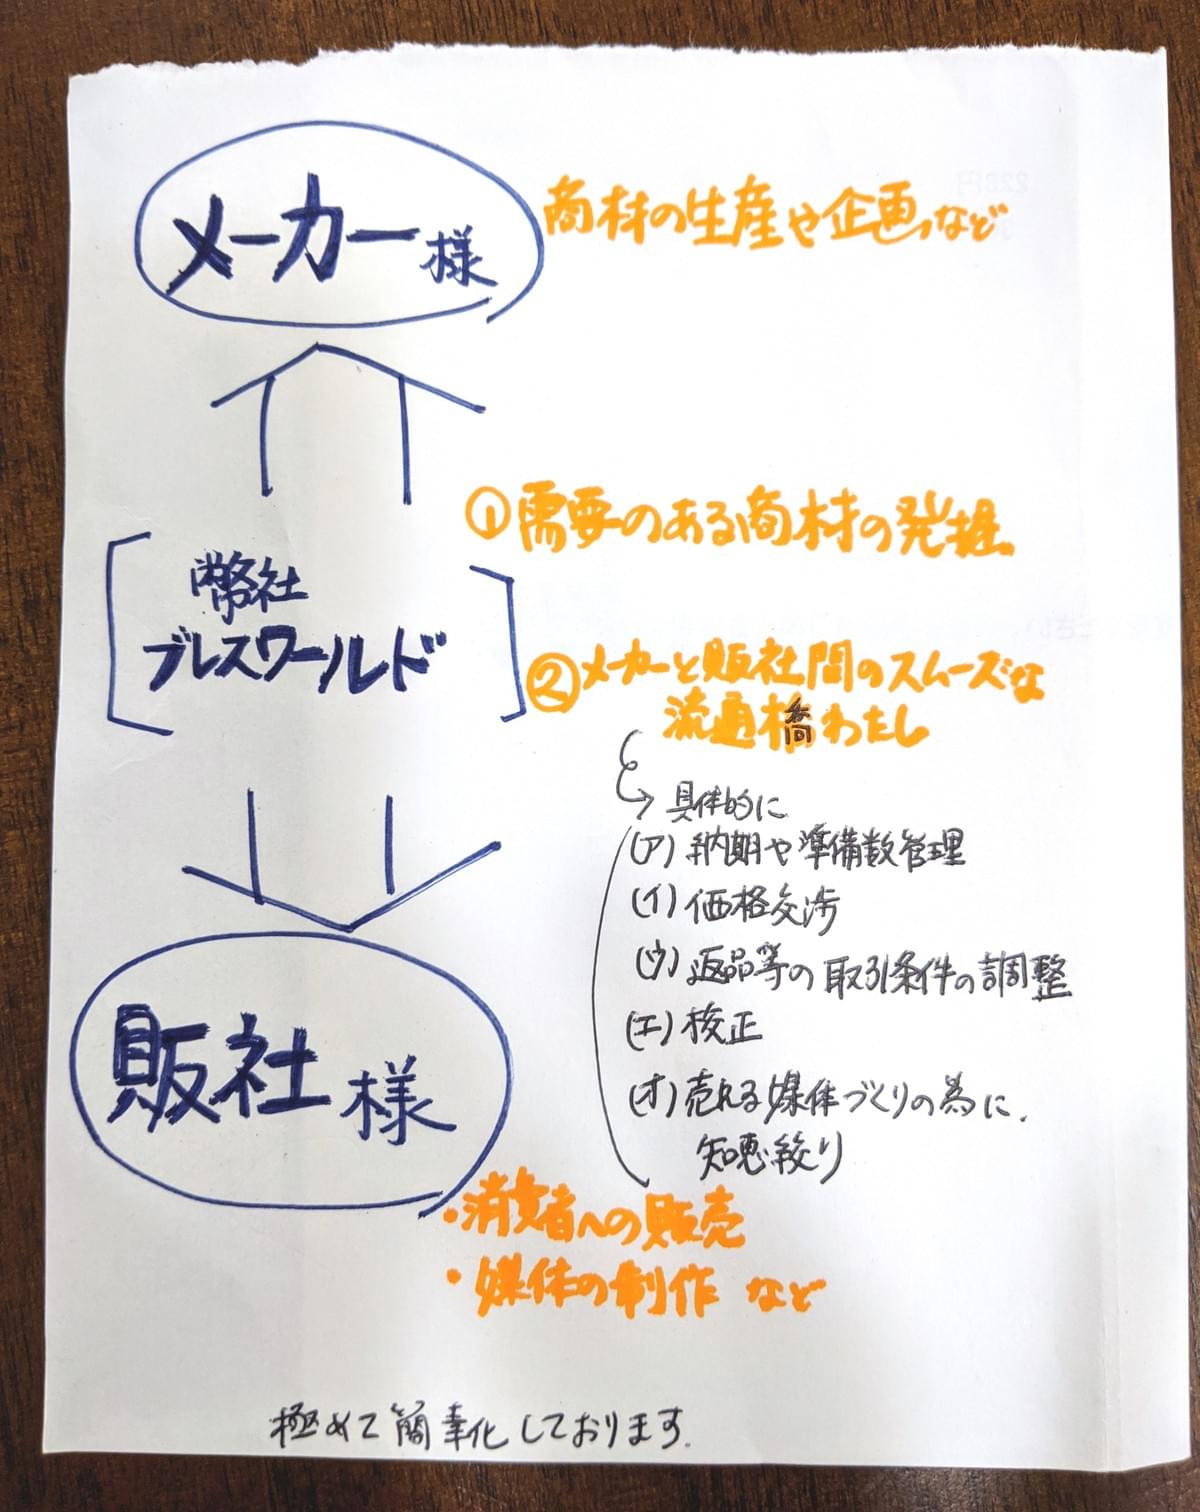 メーカー様
商材の生産や企画など
①需要のある商材の発掘
弊社
ブレスワールド
②メーカーと販社間のスムーズな
流通橋わたし
具体的に
(ア)納期や準備数管理
(イ)価格交渉
(ウ)返品等の取引条件の調整
(エ)校正
(オ)売れる媒体づくりの為に、
知恵絞り
販社様
・消費者への販売
・媒体の制作 など
極めて簡単化しております。